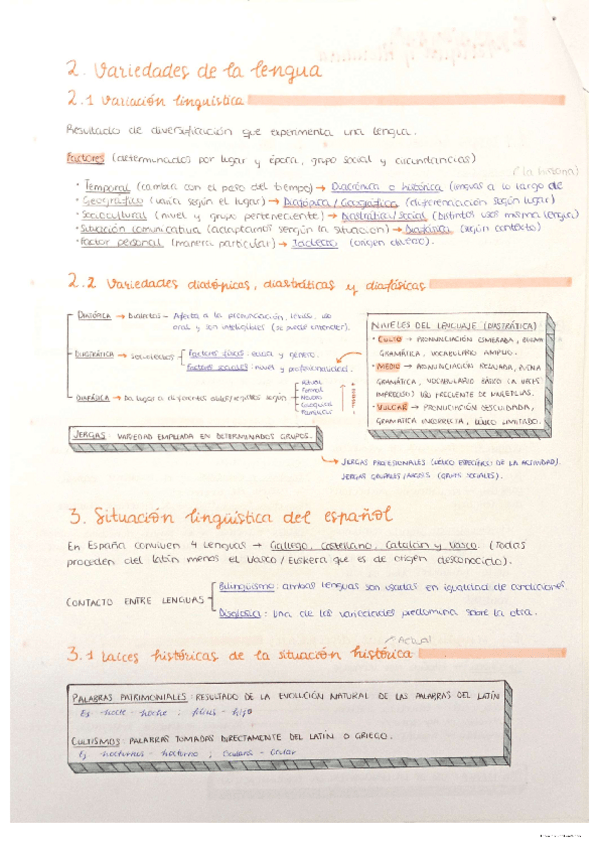 2. Variedades de la lengua
2.1 Variación linguística
Resultado de diversificación que experimenta una lengua.
Factores (determinados por lugar y época, grupo social y circunstancias)
(la historia)
· Temporal (cambia con el paso del tiempo) → Diacrónica o histórica (lenguas a lo largo de
· Geográfico (varía según el lugar) → Diatópica / Geográfica (diferenciación según lugar)
· Sociocultural (nivel y grupo perteneciente) → Diastrática / social (distintos usos misma lengua)
· Situación comunicativa (adaptamos según la situación) → Diafásica (según contexto)
· Factor personal (manera particular) → Idiolecto
2.2 Variedades diatópicas, diastráticas y diafásicas
DIATÓPICA → Dialectos - Afecta a la pronunciación, léxico, uso
oral y son inteligibles (se puede entender).
DIASTRÁTICA → sociolectos
Factores físicos: edad y género.
Factores sociales: nivel y profesionalidad.
DIAFÁSICA → Da lugar a diferentes subregistros según
Ritual
Formal
Neutro
Coloquial
Familiar
NIVELES DEL LENGUAJE (DIASTRÁTICA)
· CULTO → PRONUNCIACIÓN ESMERADA, BUENA
GRAMÁTICA, VOCABULARIO AMPLIO.
· MEDIO → PRONUNCIACIÓN RELAJADA, BUENA
GRAMÁTICA, VOCABULARIO BÁSICO (A VECES
IMPRECISO) USO FRECUENTE DE MULETILLAS.
· VULGAR → PRONUNCIACIÓN DESCUIDADA,
GRAMÁTICA INCORRECTA, LÉXICO LIMITADO.
JERGAS: VARIEDAD EMPLEADA EN DETERMINADOS GRUPOS.
→ JERGAS PROFESIONALES (LÉXICO ESPECÍFICO DE LA ACTIVIDAD).
JERGAS GRUPALES/ARGOTS (GRUPOS SOCIALES).
3. Situación lingüística del español
En España conviven 4 lenguas → Gallego, castellano, Catalán y Vasco. (Todas
proceden del latín menos el Vasco / Euskera que es de origen desconocido).
CONTACTO ENTRE LENGUAS
Bilingüismo: ambas lenguas son usadas en igualdad de condiciones
Diglosia: Una de las variedades predomina sobre la otra.
Actual
3.1 Raíces históricas de de la situación histórica
PALABRAS PATRIMONIALES: RESULTADO DE LA EVOLUCIÓN NATURAL DE LAS PALABRAS DEL LATÍN
Ej. nocte - noche ; filius - hijo
CULTISMOS: PALABRAS TOMADAS DIRECTAMENTE DEL LATÍN O GRIEGO.
Ej nocturnus - nocturno ;